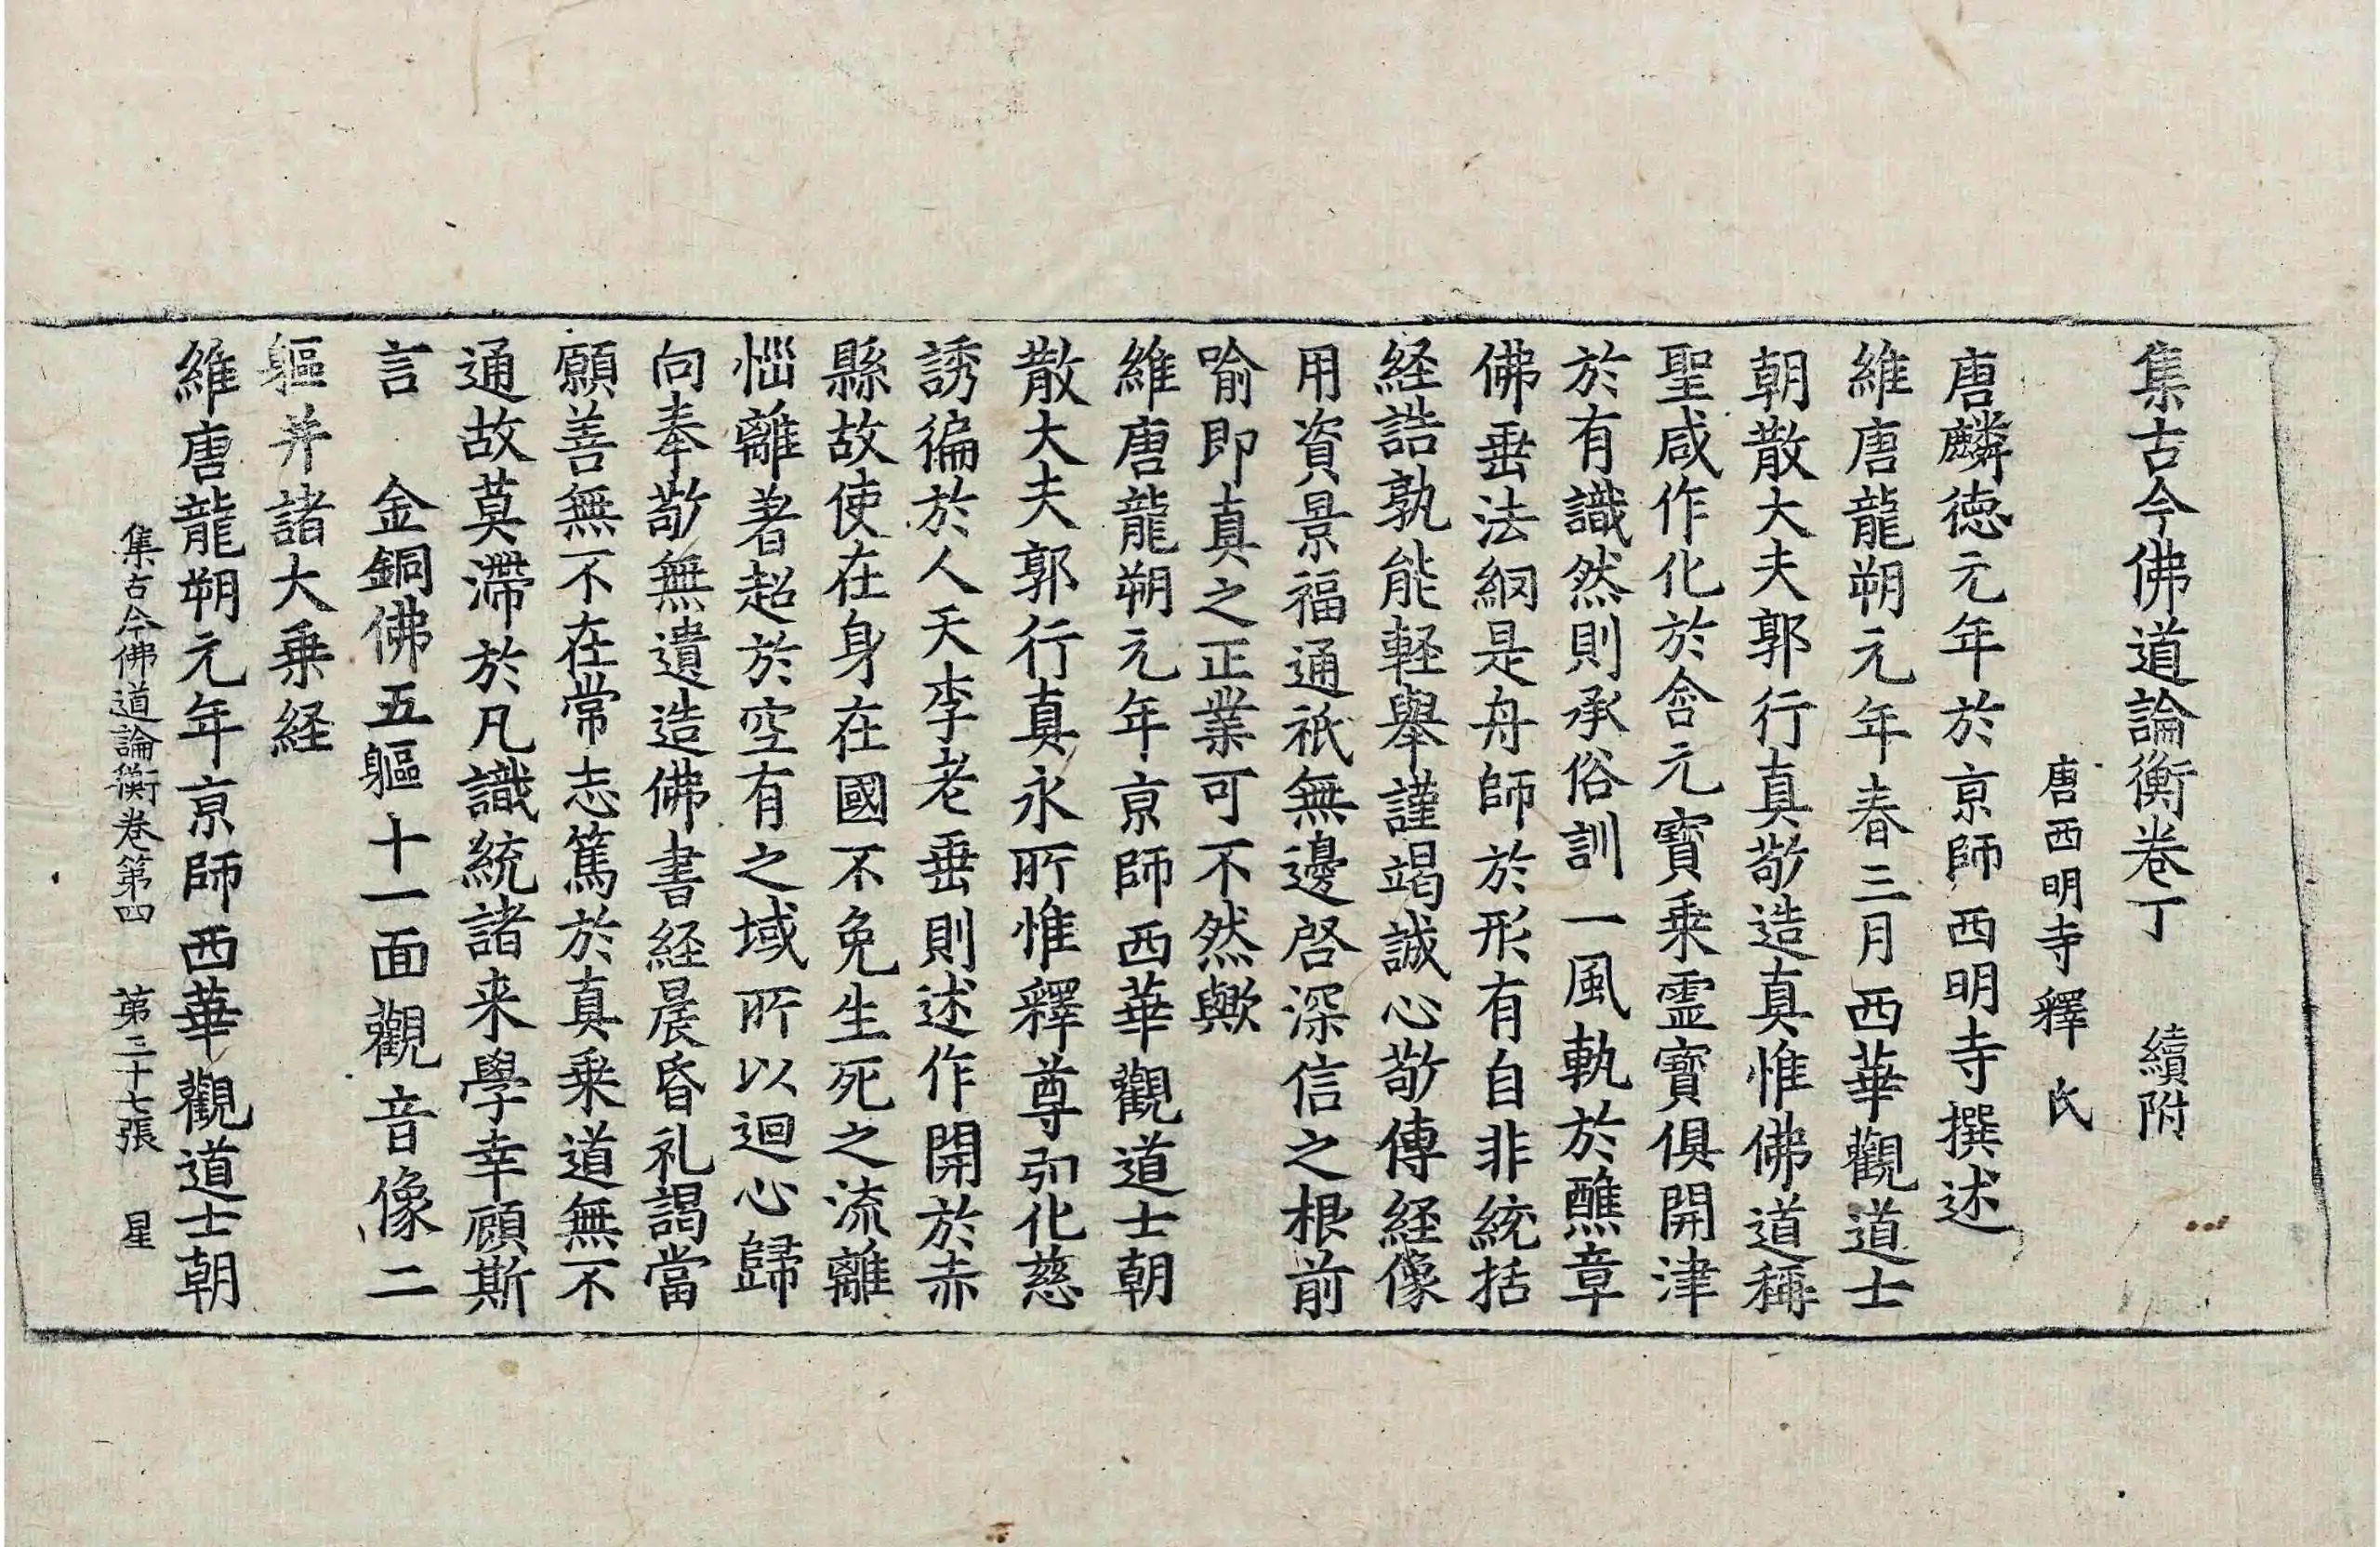 集古今佛道論衡卷丁　續附
唐西明寺釋氏
唐麟徳元年於京師西明寺撰述
維唐龍朔元年春三月西華觀道士
朝散大夫郭行真敬造真惟佛道稱
聖咸作化於含元寳乗霊寳俱開津
於有識然則承俗訓一風軌於醮章
佛垂法綱是舟師於形有自非統括
経誥孰能軽舉謹竭誠心敬傳経像
用資景福通祇無邊啓深信之根前
喻即真之正業可不然歟
維唐龍朔元年京師西華觀道士朝
散大夫郭行真永所惟釋尊引化慈
誘徧於人天李老垂則述作開於赤
縣故使在身在國不免生死之流離
惱離著超於空有之域所以迴心歸
向奉敬無遺造佛書経晨昏礼謁當
願善無不在常志篤於真乗道無不
通故莫滯於凡識統諸来學幸顧斯
言　金銅佛五軀十一面觀音像二
軀并諸大乗経
維唐龍朔元年京師西華觀道士朝
集古今佛道論衡卷第四　第三十七張　星